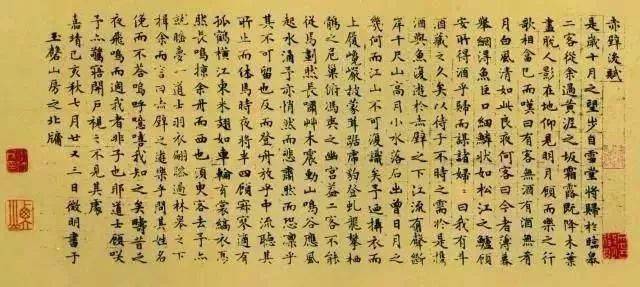 赤壁後賦
是歲十月之望步自雪堂將歸於臨皋
二客從余過黃泥之坂霜露既降木葉
盡脫人影在地仰見明月顧而樂之行
歌相答已而嘆曰有客無酒有酒無肴
月白風清如此良夜何客曰今者薄暮
舉網得魚巨口細鱗狀如松江之鱸顧
安所得酒乎歸而謀諸婦婦曰我有斗
酒藏之久矣以待子不時之需於是攜
酒與魚復遊於赤壁之下江流有聲斷
岸千尺山高月小水落石出曾日月之
幾何而江山不可復識矣予迺攝衣而
上履巉巖披蒙茸踞虎豹登虬龍攀栖
鶻之危巢俯馮夷之幽宮蓋二客不能
從焉劃然長嘯草木震動山鳴谷應風
起水涌予亦悄然而悲肅然而恐凜乎
其不可留也反而登舟放乎中流聽其
所止而休焉時夜將半四顧寂寥適有
孤鶴橫江東來翅如車輪玄裳縞衣戛
然長鳴掠余舟而西也須臾客去予亦
就睡夢一道士羽衣翩躚過臨皋之下
揖余而言曰赤壁之遊樂乎問其姓名
俛而不答嗚呼噫嘻我知之矣疇昔之
夜飛鳴而過我者非子也耶道士顧笑
予亦驚寤開戶視之不見其處
嘉靖己亥秋七月廿又三日徵明書于
玉磬山房之北牖